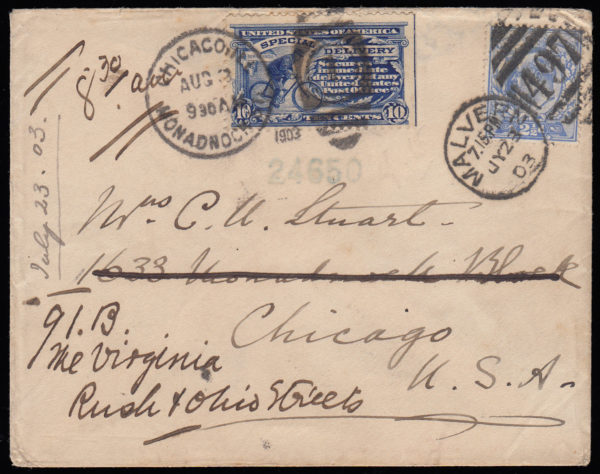 CHICAGO, ILL.
AUG 3
9 30 A
MONADNOCK
1903
UNITED STATES OF AMERICA
SPECIAL DELIVERY
Secures
immediate
delivery at any
United States
Post Office
10 TEN CENTS 10
1497
MALVERN
7.15 PM
JY 23
03
8 30
24650
July 23. 03.
Mrs C. U. Stuart
1633 Monadnock Block
Chicago
U. S. A.
91. B.
The Virginia
Rush & Ohio Streets